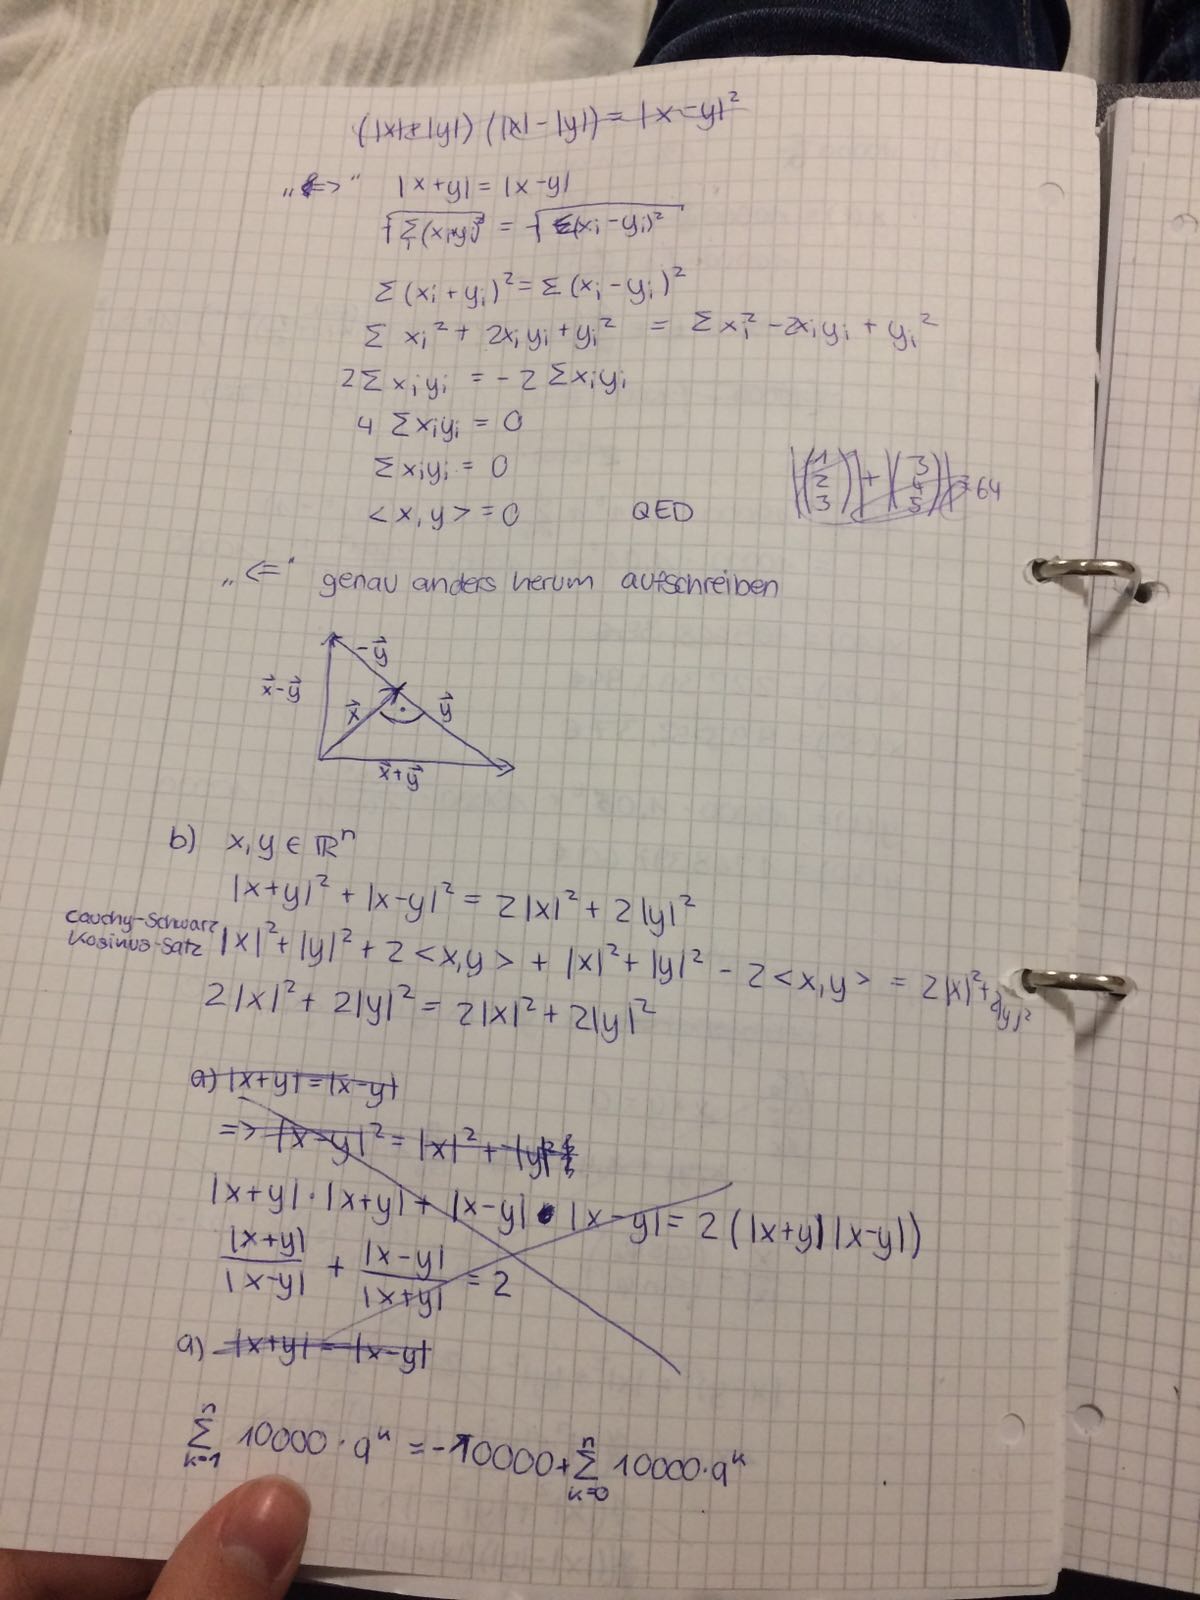 (|x|+|y|) (|x|-|y|) = |x-y|²
„<=>“ |x+y| = |x-y|
√Σ(xᵢ+yᵢ)² = √Σ(xᵢ-yᵢ)²
Σ(xᵢ+yᵢ)² = Σ(xᵢ-yᵢ)²
Σ xᵢ² + 2xᵢyᵢ + yᵢ² = Σ xᵢ² - 2xᵢyᵢ + yᵢ²
2Σxᵢyᵢ = -2Σxᵢyᵢ
4 Σxᵢyᵢ = 0
Σxᵢyᵢ = 0
<x,y> = 0 QED
|(1 2 3)| + |(3 4 5)| = 64
„<=“ genau anders herum aufschreiben
-y⃗
x⃗-y⃗
x⃗ y⃗
x⃗+y⃗
b) x,y ∈ ℝⁿ
|x+y|² + |x-y|² = 2|x|² + 2|y|²
Cauchy-Schwarz
Kosinus-Satz
|x|² + |y|² + 2<x,y> + |x|² + |y|² - 2<x,y> = 2|x|² + 2|y|²
2|x|² + 2|y|² = 2|x|² + 2|y|²
a) |x+y| = |x-y|
=> |x-y|² = |x|² + |y|²
|x+y|·|x+y| + |x-y|·|x-y| = 2(|x+y||x-y|)
|x+y|/|x-y| + |x-y|/|x+y| = 2
a) |x+y| = |x-y|
Σₖ₌₁ⁿ 10000·qᵏ = -10000+Σₖ₌₀ⁿ 10000·qᵏ